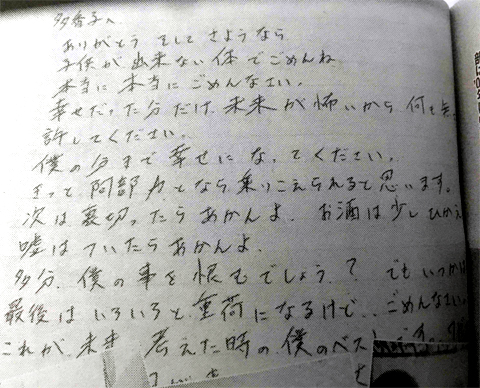 多香子へ
ありがとう そして さようなら
子供が 出来ない 体 で ごめんね
本当に 本当に ごめんなさい。
幸せだった分だけ 未来 が 怖いから 何も
許してください。
僕の分まで 幸せに なってください。
きっと 阿部 力 となら 乗りこえられると思います。
次は 裏切ったら あかんよ. お酒は少し ひかえ
嘘は ついたら あかんよ.
多分、僕の事を 恨むでしょう? でもいつかは
最後は いろいろと 重荷になるけど、ごめんなさい。
これが、未来 考えた時の 僕のベスト です。